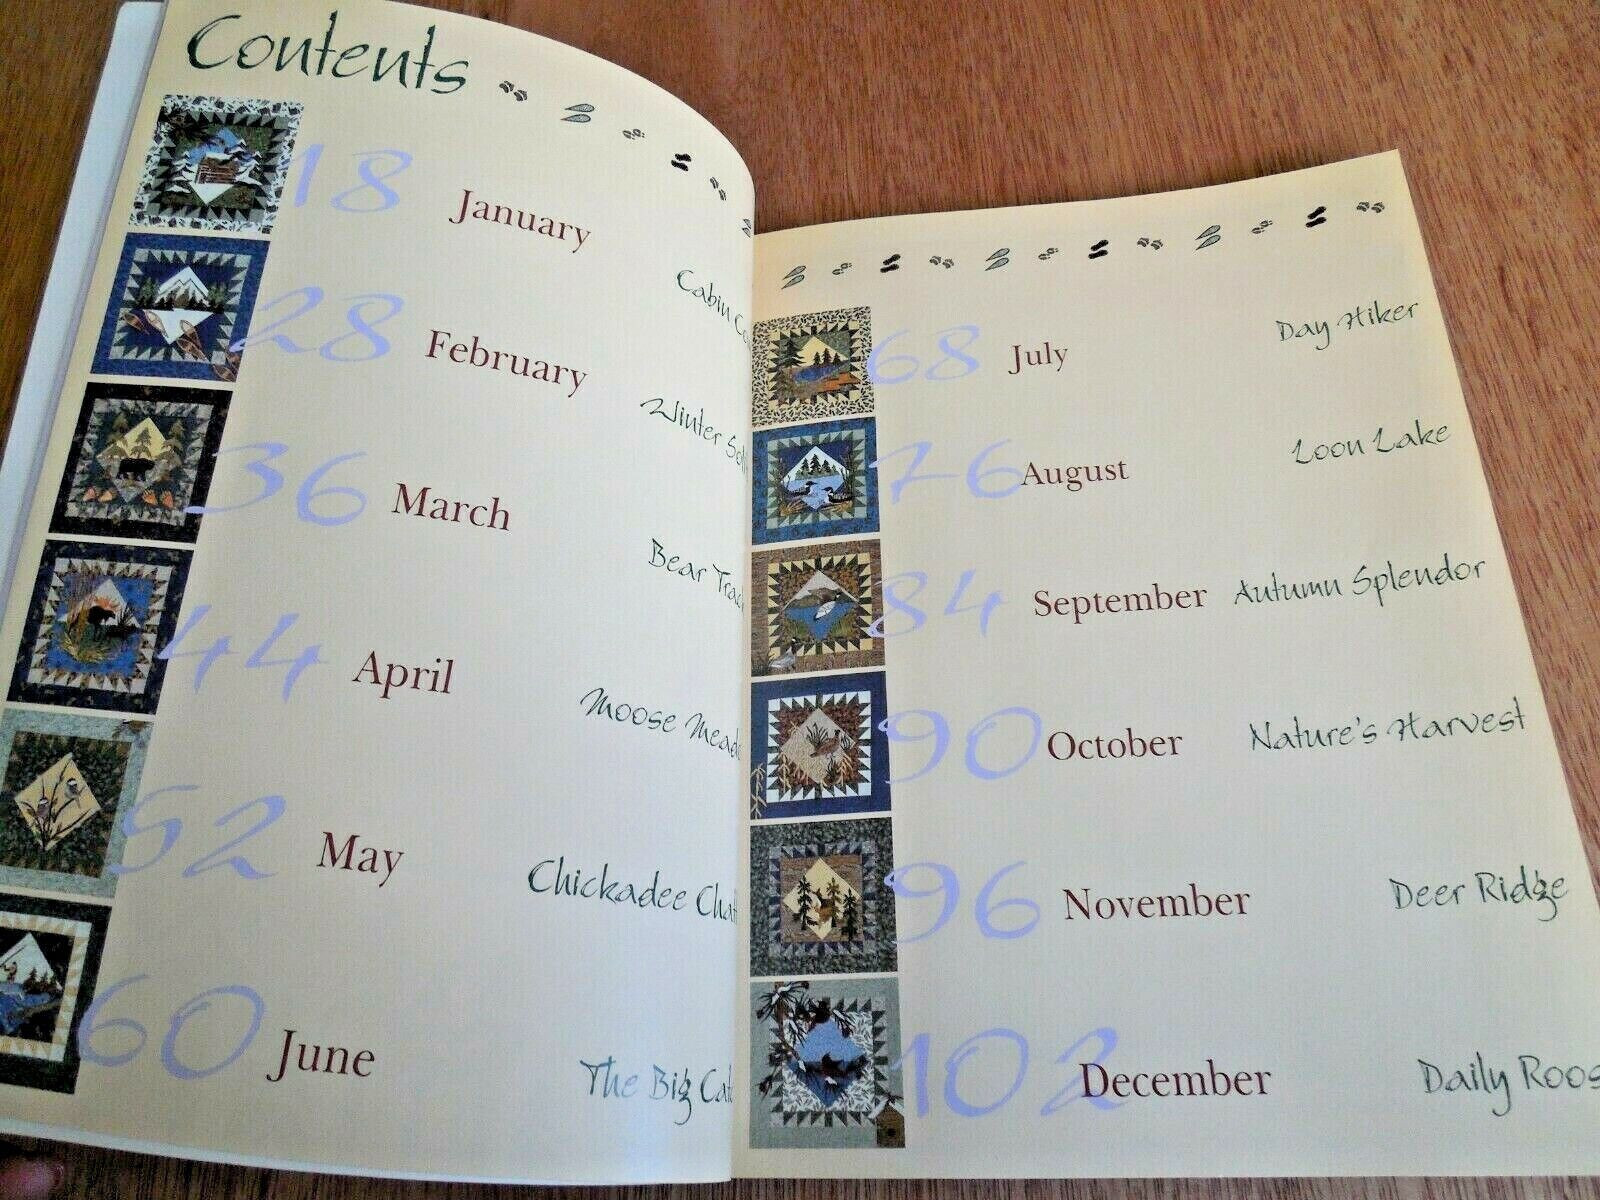 Contents
18 January
Cabin
28 February
Winter
36 March
Bear
44 April
Moose
52 May
Chickadee
60 June
The Big
68 July Day Hiker
76 August Loon Lake
84 September Autumn Splendor
90 October Nature's Harvest
96 November Deer Ridge
102 December Daily